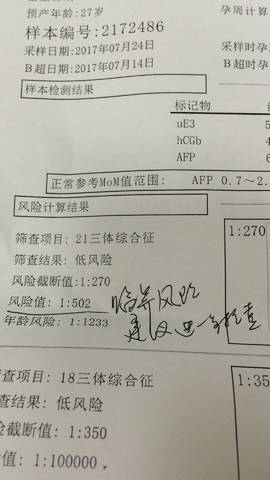 预产年龄:27岁
孕周计算
样本编号:2172486
采样日期:2017年07月24日
采样时孕
B超日期:2017年07月14日
B超时孕
样本检测结果
标记物
uE3
hCGb
AFP
正常参考MoM值范围: AFP 0.7~2.
风险计算结果
筛查项目: 21三体综合征
1:270
筛查结果: 低风险
风险截断值:1:270
风险值: 1:502
临界风险
建议进一步检查
年龄风险: 1:1233
查项目: 18三体综合征
1:35
查结果: 低风险
险截断值: 1:350
值: 1:100000